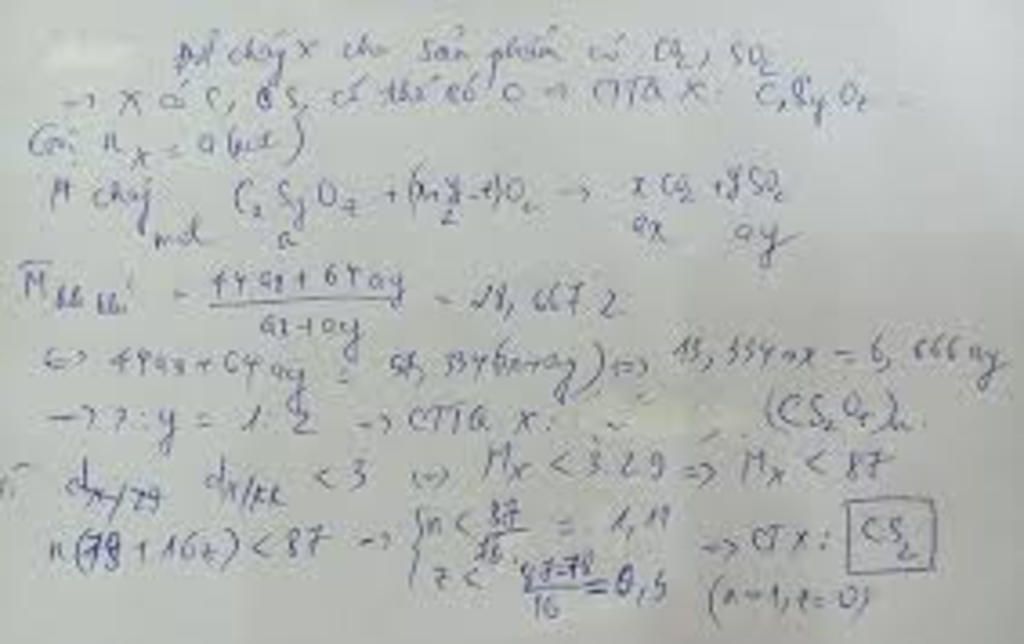 Đốt cháy X cho sản phẩm có CO2, SO2
→ X có C, S, có thể có O → CTTQ X: CxSyOz
Gọi nX = a (mol)
Pt cháy CxSyOz + (x+y-z/2)O2 → xCO2 + ySO2
mol a ax ay
M hh khí = (44ax + 64ay)/(ax+ay) = 28,667.2
<=> 44ax + 64ay = 57,334(ax+ay) <=> 13,334ax = 6,666ay
→ x:y = 1:2 → CTTQ X: (CS2Oz)n.
dX/KK < 3 <=> MX < 3.29 => MX < 87
n(78+16z) < 87 → { n < 87/76 = 1,14 → CTX: CS2
z < (87-78)/16 = 0,5 (n=1, z=0)